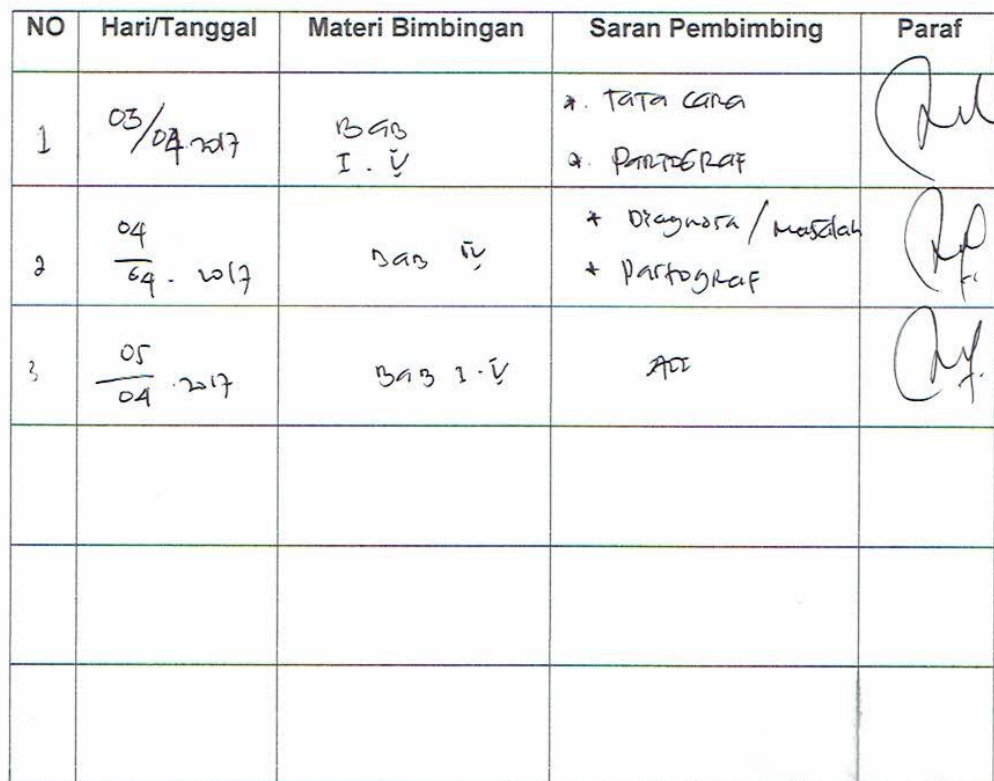 NO Hari/Tanggal Materi Bimbingan Saran Pembimbing Paraf
1 03/04.2017 BAB I.V * Tata cara
* PARTOGRAF
2 04/04.2017 BAB IV * Diagnosa/Masalah
* Partograf
3 05/04.2017 BAB I.V Acc